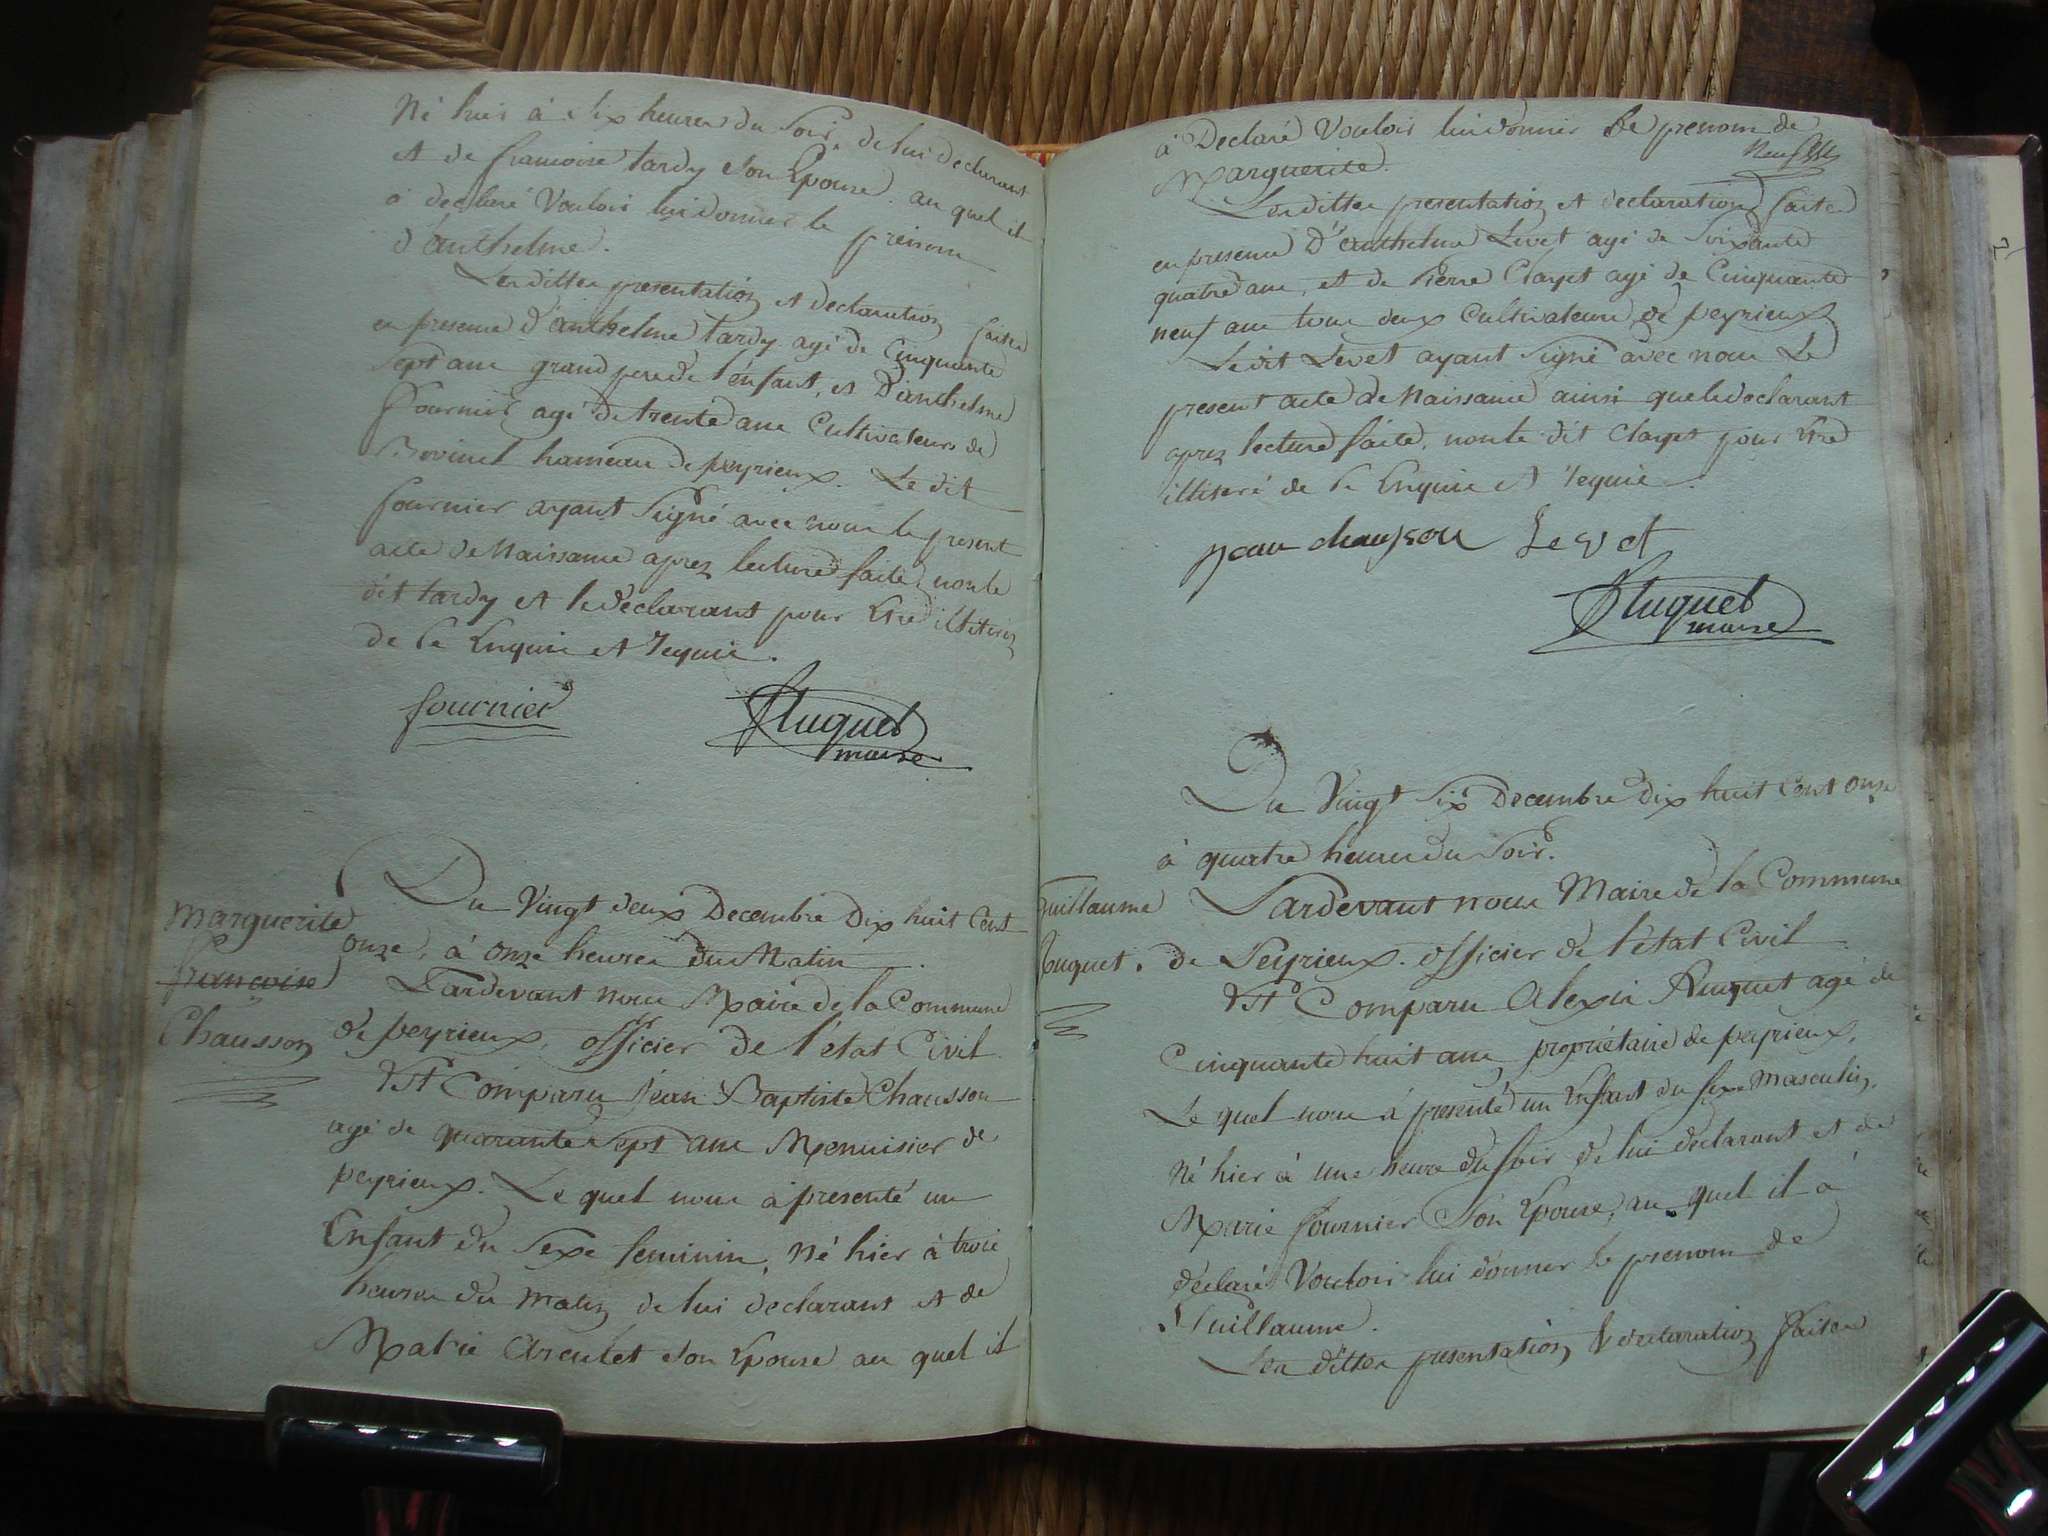 Né hier à Six heures du Soir, de lui declarant
et de francoise tardy Son Epouse. au quel il
à declaré Vouloir lui donner le prenom
d'anthelme.
Les dittes presentation et declaration faites
en presence d'anthelme tardy agé de Cinquante
Sept ans grand pere de l'enfant, et D'anthelme
fournier agé de trente ans Cultivateurs de
hameau de peyrieux. Le dit
fournier ayant Signé avec nous le present
acte de Naissance aprez lecture faite, non le
dit tardy et le declarant pour Etre illiterés
de ce Enquis et requis.
fournier
Huguet
maire
Du Vingt deux Decembre Dix huit Cent
onze, à onze heures du Matin
Marguerite
francoise
Chausson
Pardevant nous Maire de la Commune
de peyrieux, officier de l'état Civil.
Est Comparu jean Baptiste Chausson
agé de quarante Sept ans Menuisier de
peyrieux. Le quel nous à presenté un
Enfant du Sexe feminin, Né hier à trois
heures du matin de lui declarant et de
Marie Son Epouse au quel il
à Declaré Vouloir lui donner le prenom de
Marguerite.
Les dittes presentation et declaration faites
en presence D'anthelme Levet agé de Soixante
quatre ans, et de Pierre Clayet agé de Cinquante
neuf ans tous deux Cultivateurs de peyrieux
Le dit Levet ayant Signé avec nous Le
present acte de Naissance ainsi que le declarant
aprez lecture faite, non le dit Clayet pour Etre
illiteré de ce Enquis et requis.
jean chausson Levet
Huguet
maire
Du Vingt Six Decembre Dix huit Cent onze
à quatre heures du Soir.
Guillaume
huguet.
Pardevant nous Maire de la Commune
de Peyrieux. officier de l'état Civil
Est Comparu Alexis Huguet agé de
Cinquante huit ans, propriétaire de peyrieux,
Le quel nous à presenté un Enfant du Sexe Masculin,
Né hier à une heure du Soir de lui declarant et de
Marie fournier Son Epouse, au quel il à
déclaré Vouloir lui donner le prenom de
Guillaume.
Les dittes presentation & declaration faites